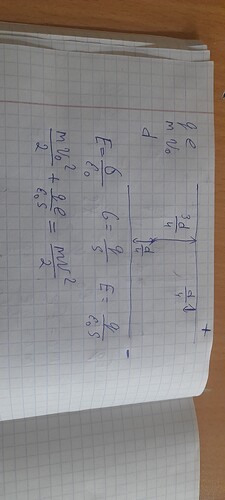 q e
m v₀
d
3d/4
d/4
d/4
+
-
E = б/ε₀ б = q/s E = q/ε₀s
mv₀²/2 + qe/ε₀s = mv²/2